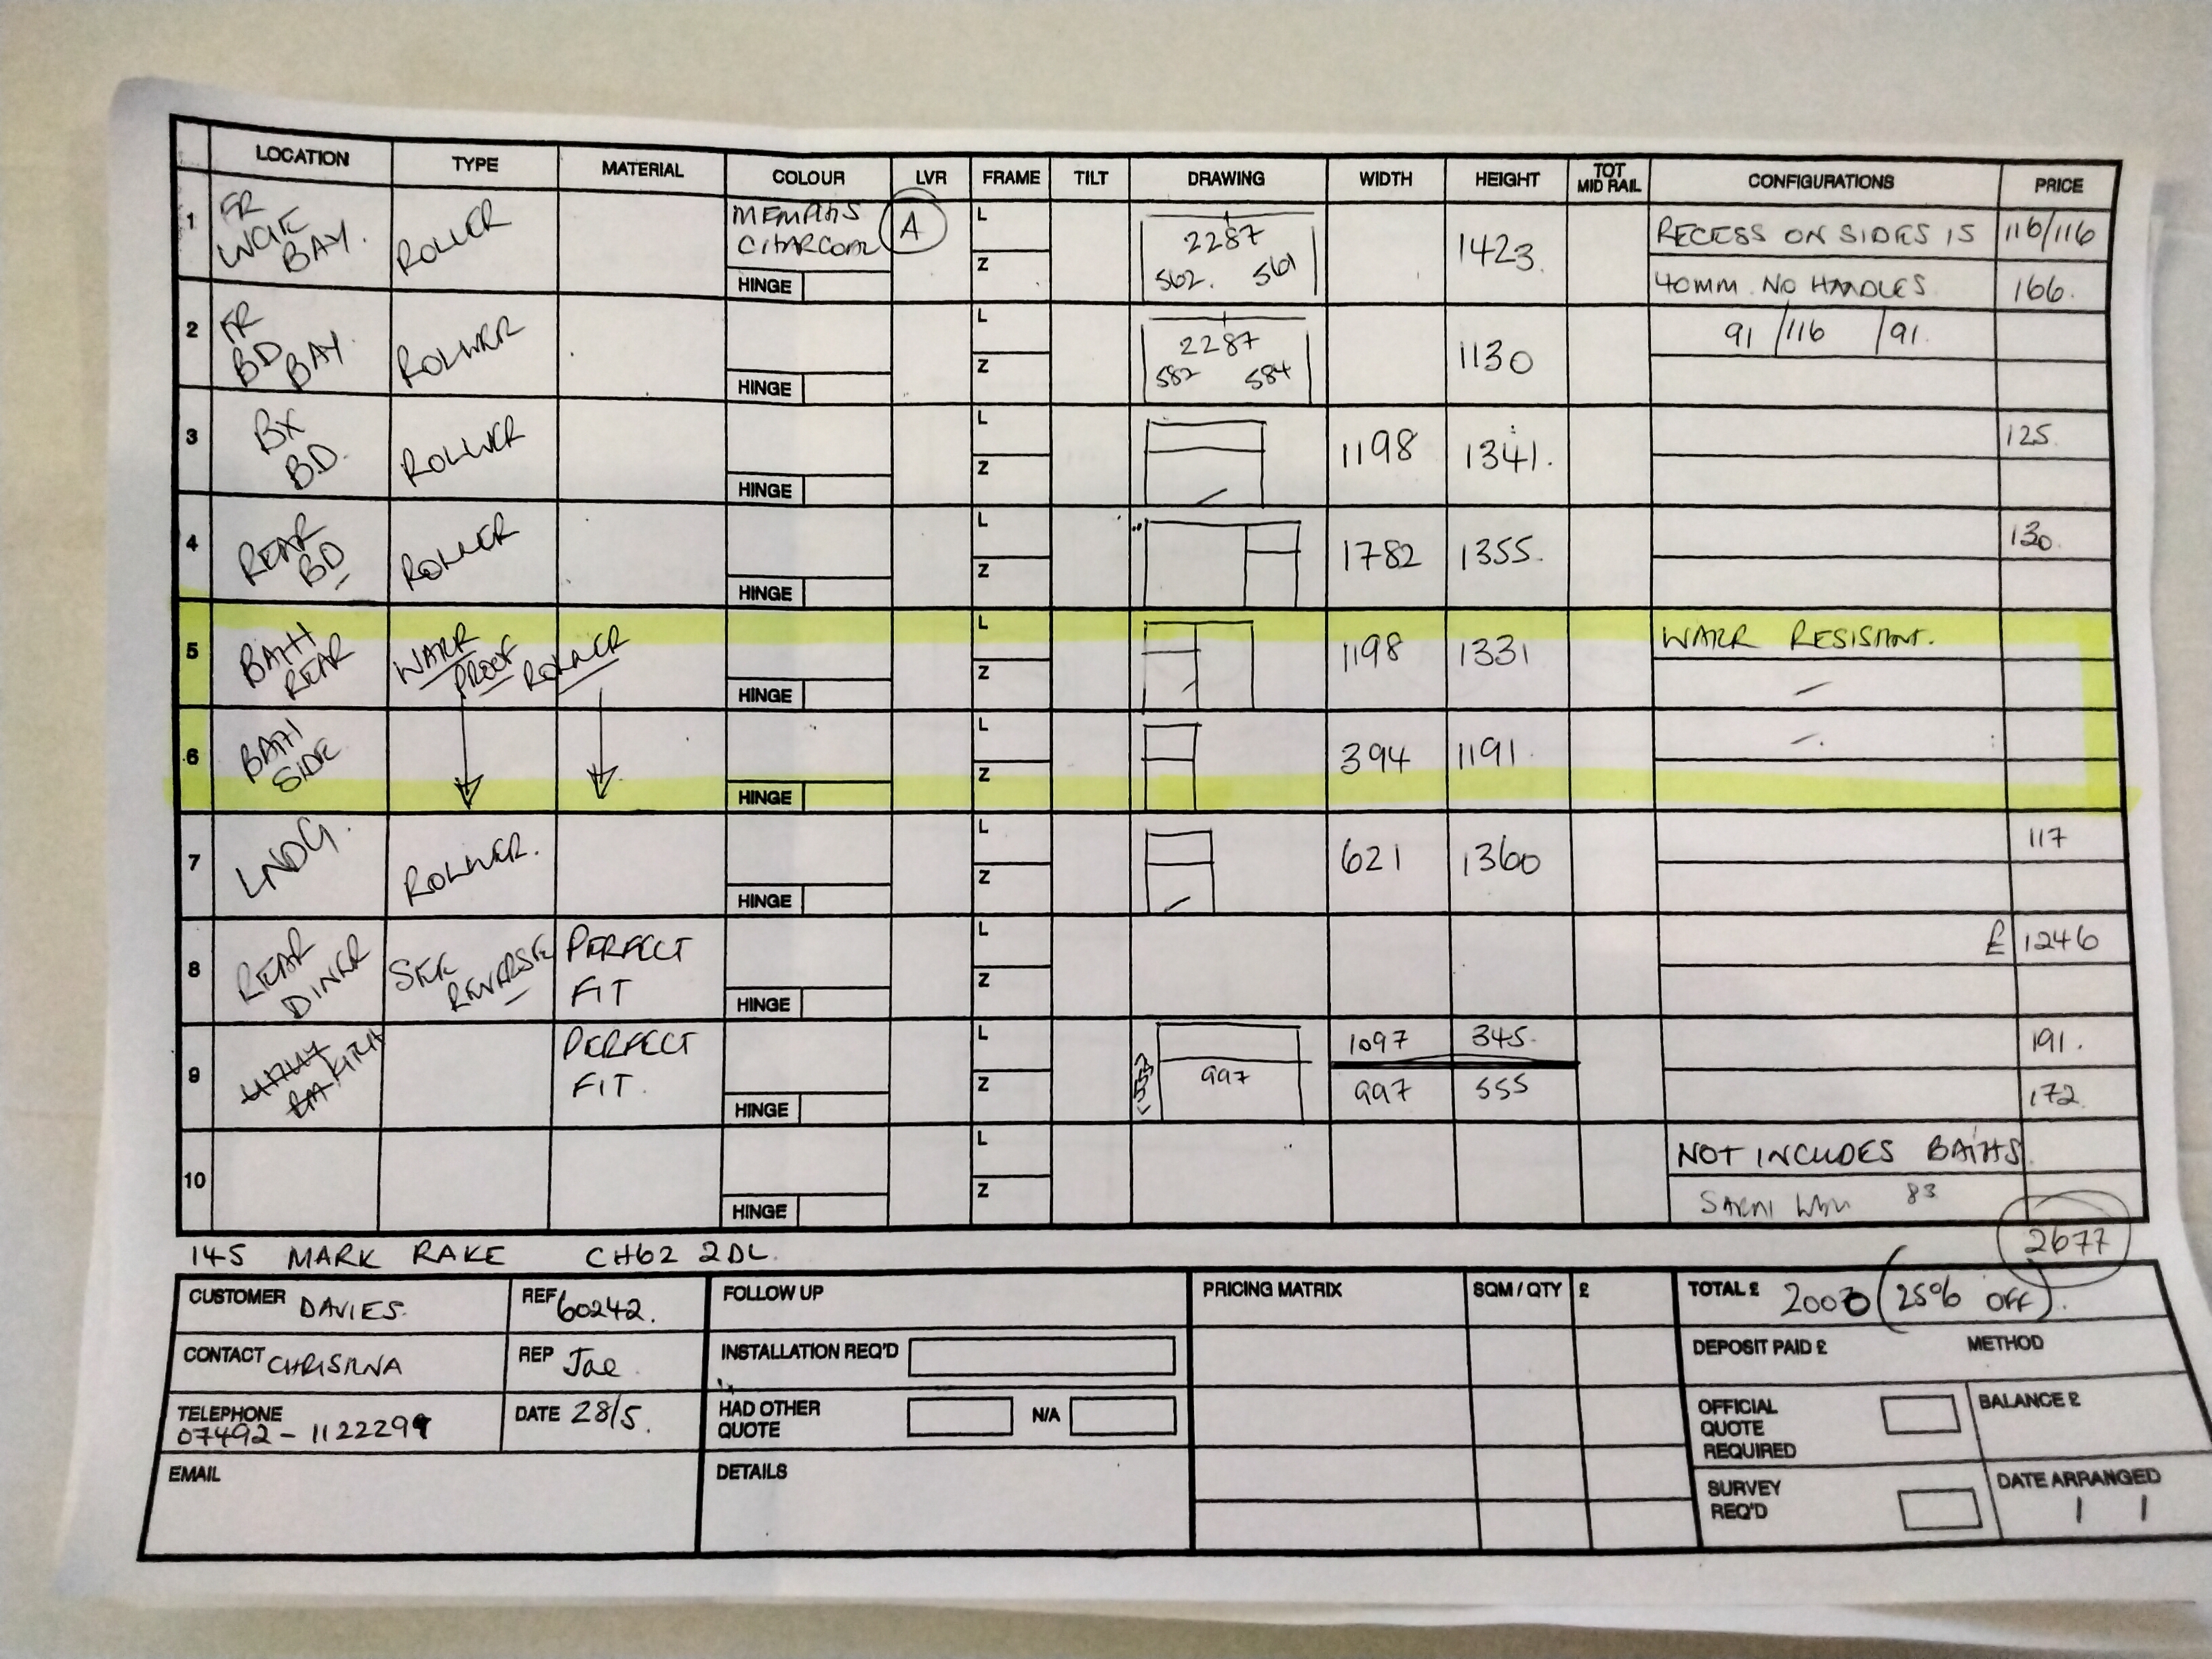 LOCATION TYPE MATERIAL COLOUR LVR FRAME TILT DRAWING WIDTH HEIGHT TOT MID RAIL CONFIGURATIONS PRICE
1 FR BAY. ROLLER MEMPHIS CHARCOAL A L Z HINGE 2287 562. 561 1423 RECESS ON SIDES IS 116/116
40MM. NO HANDLES 166.
2 FR BD BAY. ROLLER L Z HINGE 2287 582 584 1130 91 /116 /91
3 BX BD. ROLLER L Z HINGE 1198 1341. 125.
4 REAR BD ROLLER L Z HINGE 1782 1355. 130.
5 BATH REAR WATR PROOF ROLLER L Z HINGE 1198 1331 WATR RESISTANT.
6 BATH SIDE L Z HINGE 394 1191
7 LNDG. ROLLER. L Z HINGE 621 1360 117
8 REAR DINER SEE REVERSE PERFECT FIT L Z HINGE £ 1246
9 KITCH PERFECT FIT. L Z HINGE 997 1097 345. 191.
997 555 172.
10 L Z HINGE NOT INCLUDES BATHS
83
2677
145 MARK RAKE CH62 2DL.
CUSTOMER DAVIES. REF 60242. FOLLOW UP PRICING MATRIX SQM / QTY £ TOTAL £ 2000 (25% OFF).
CONTACT CHRISTINA REP Jae. INSTALLATION REQ'D DEPOSIT PAID £ METHOD
TELEPHONE 07492-1122299 DATE 28/5. HAD OTHER QUOTE N/A OFFICIAL QUOTE REQUIRED BALANCE £
EMAIL DETAILS SURVEY REQ'D DATE ARRANGED / /